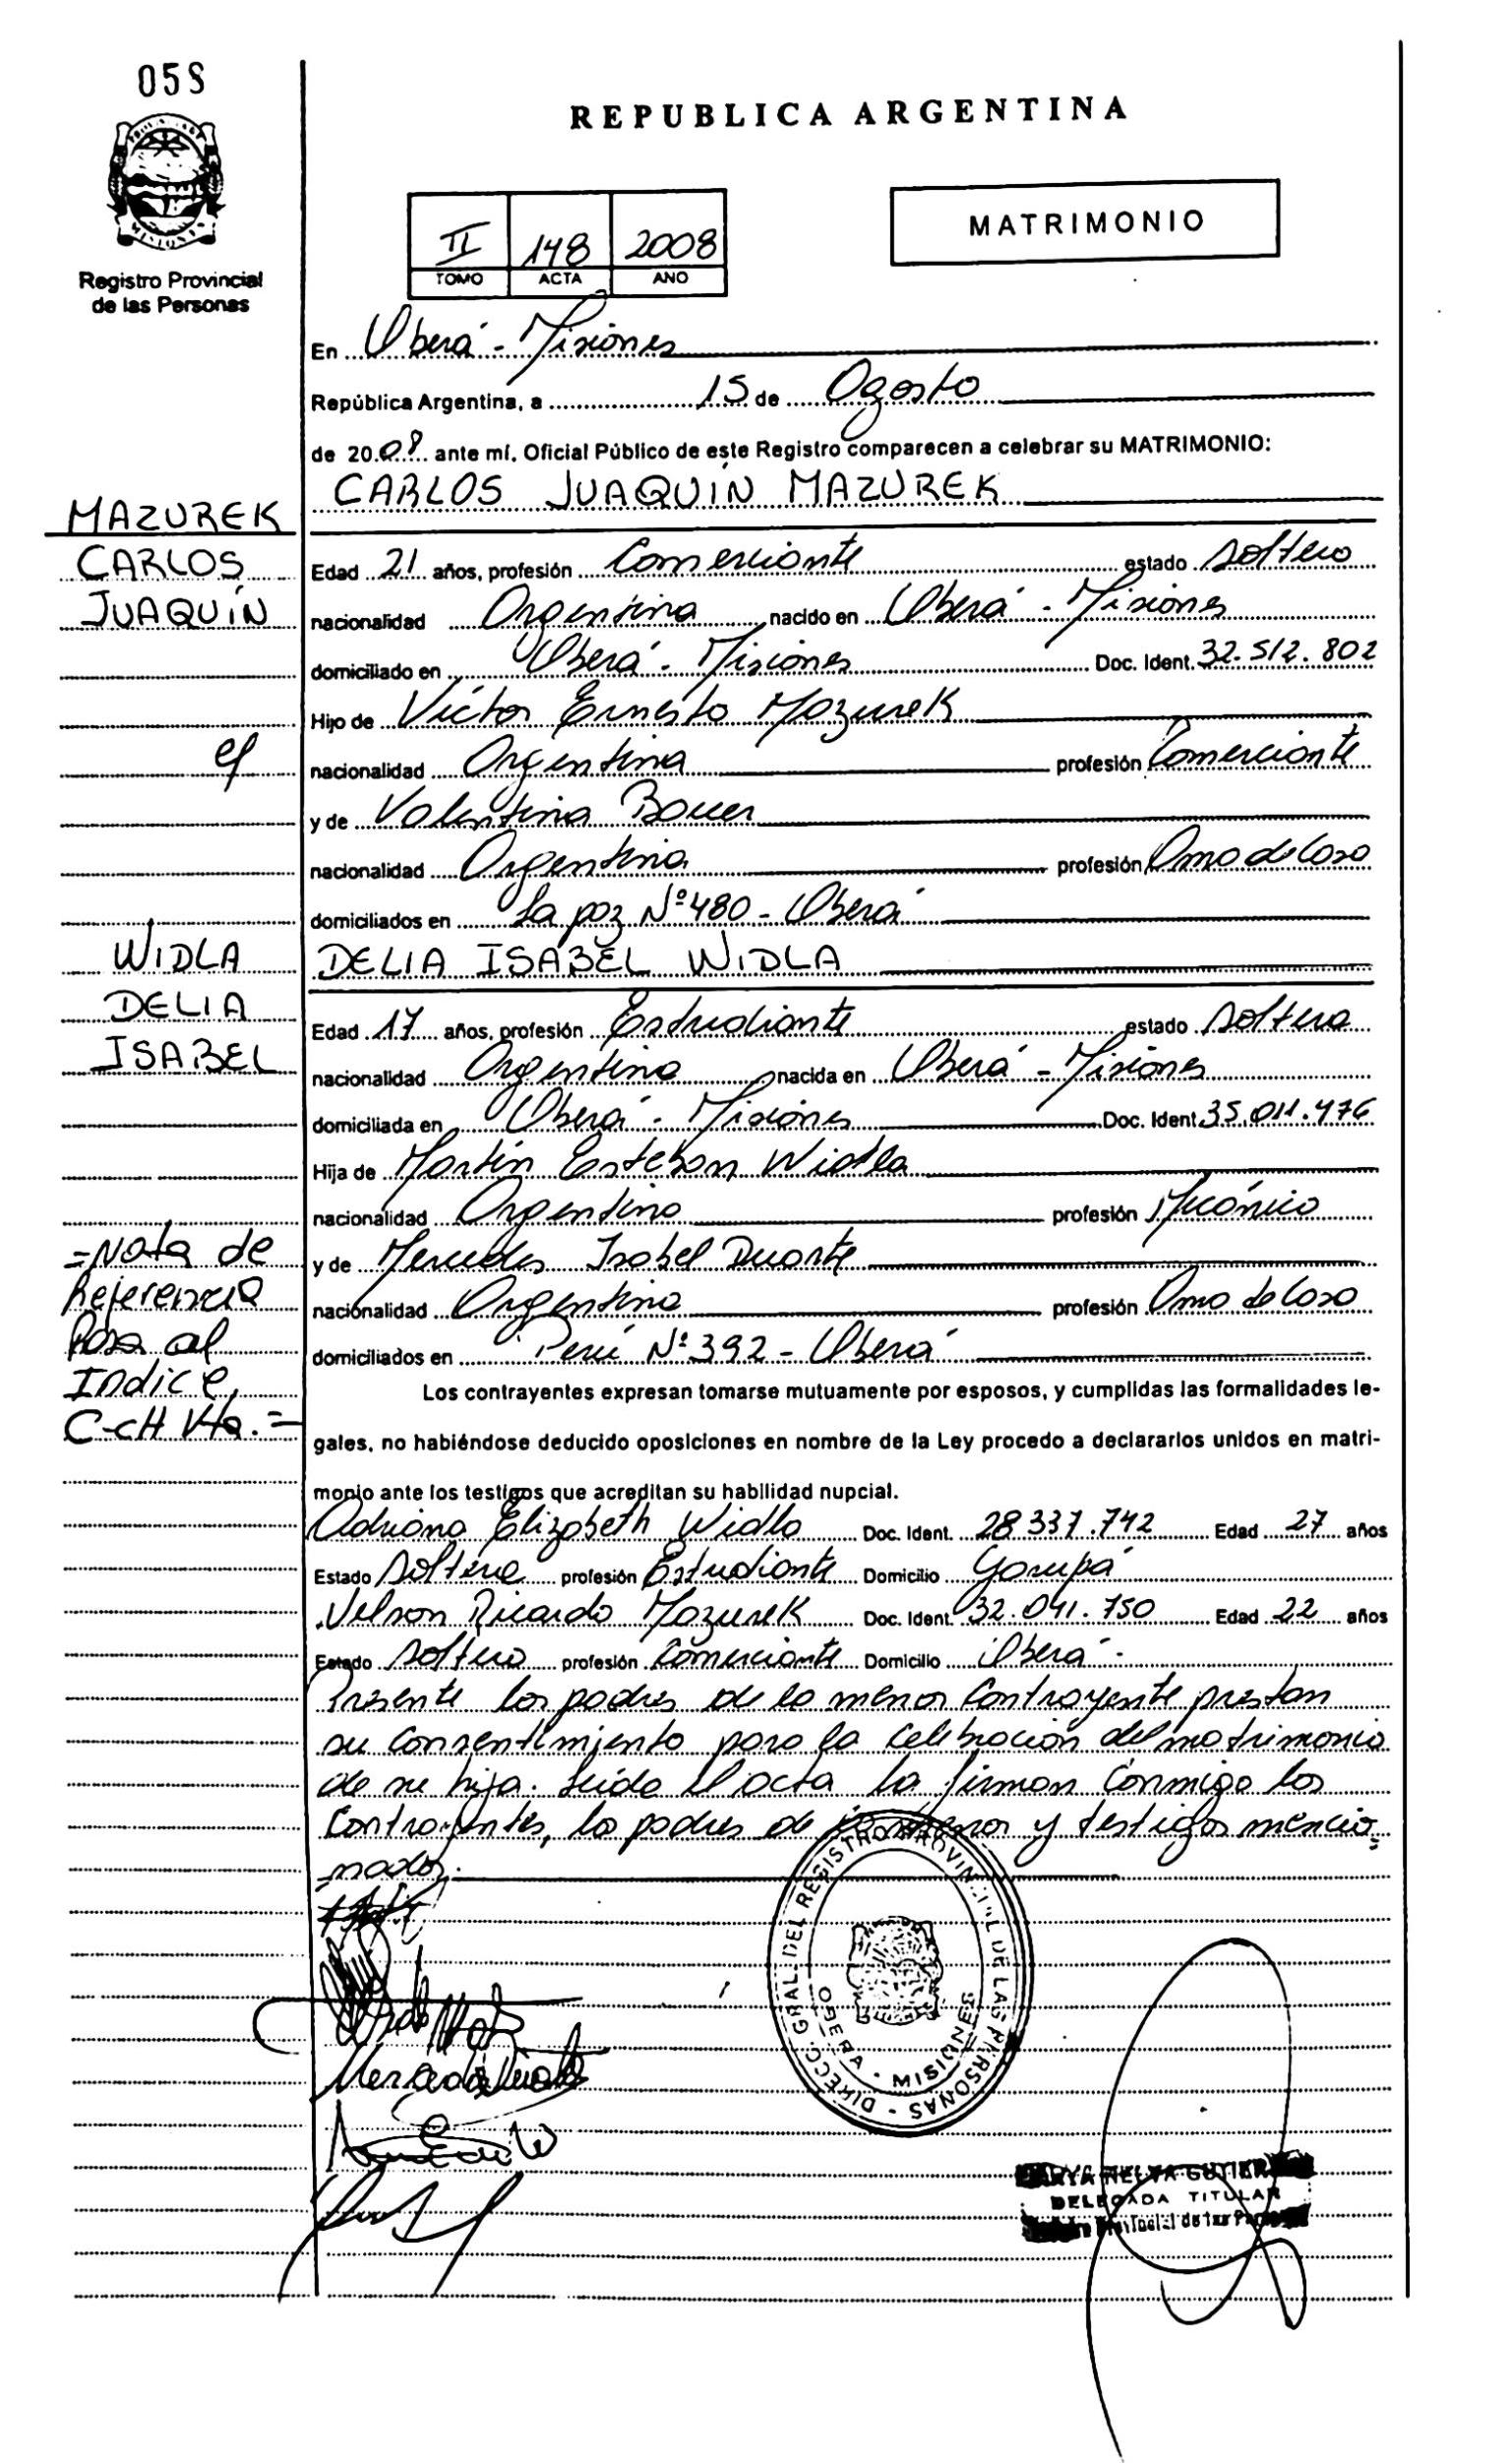 058
MISIONES
Registro Provincial
de las Personas
REPUBLICA ARGENTINA
II 148 2008
TOMO ACTA ANO
MATRIMONIO
En Oberá - Misiones
República Argentina, a 15 de Agosto
de 2008 ante mí, Oficial Público de este Registro comparecen a celebrar su MATRIMONIO:
CARLOS JUAQUÍN MAZUREK
MAZUREK
CARLOS
JUAQUÍN
Edad 21 años, profesión Comerciante estado soltero
nacionalidad Argentina nacido en Oberá - Misiones
domiciliado en Oberá - Misiones Doc. Ident. 32.512.802
Hijo de Víctor Ernesto Mazurek
nacionalidad Argentina profesión Comerciante
y de Valentina Bauer
nacionalidad Argentina profesión Ama de Casa
domiciliados en La paz Nº 480 - Oberá
WIDLA
DELIA
ISABEL
DELIA ISABEL WIDLA
Edad 17 años, profesión Estudiante estado soltera
nacionalidad Argentina nacida en Oberá - Misiones
domiciliada en Oberá - Misiones Doc. Ident. 35.011.476
Hija de Martín Esteban Widla
nacionalidad Argentina profesión Mecánico
y de Mercedes Isabel Duarte
nacionalidad Argentina profesión Ama de Casa
domiciliados en Perú Nº 392 - Oberá
=Nota de
Referencia
Pasa al
Indice,
C-CH Vta.=
Los contrayentes expresan tomarse mutuamente por esposos, y cumplidas las formalidades le-
gales, no habiéndose deducido oposiciones en nombre de la Ley procedo a declararlos unidos en matri-
monio ante los testigos que acreditan su habilidad nupcial.
Adriana Elizabeth Widla Doc. Ident. 28.337.742 Edad 27 años
Estado Soltera profesión Estudiante Domicilio Garupá
Nelson Ricardo Mazurek Doc. Ident. 32.041.750 Edad 22 años
Estado Soltero profesión Comerciante Domicilio Oberá -
Presente los padres de la menor Contrayente prestan
su consentimiento para la celebración del matrimonio
de su hija. Leída el acta la firman Conmigo los
Contrayentes, los padres de la menor y testigos mencio=
nados.
DIRECC. GRAL. DEL REGISTRO PROVINCIAL DE LAS PERSONAS
OBERA - MISIONES
GUTIER
DELEGADA TITULAR
Provincial de las